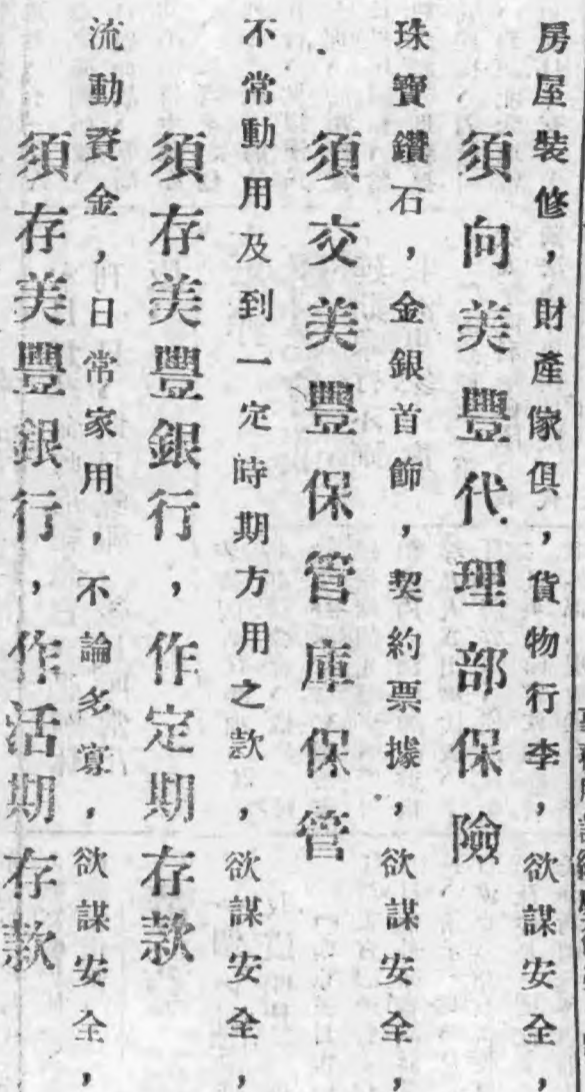 房屋裝修，財產傢俱，貨物行李，欲謀安全，
須向美豐代理部保險
珠寶鑽石，金銀首飾，契約票據，欲謀安全，
須交美豐保管庫保管
不常動用及到一定時期方用之款，欲謀安全，
須存美豐銀行，作定期存款
流動資金，日常家用，不論多寡，欲謀安全，
須存美豐銀行，作活期存款